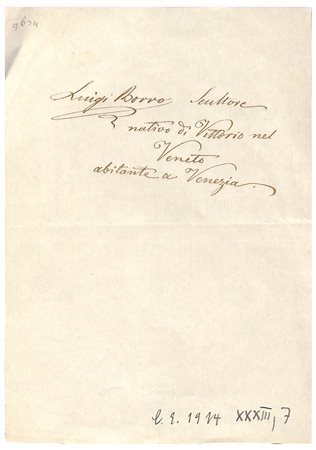 Luigi Borro Scultore
nativo di Vittorio nel
Veneto
abitante a Venezia.
C. E. 1914 XXXIII, 7